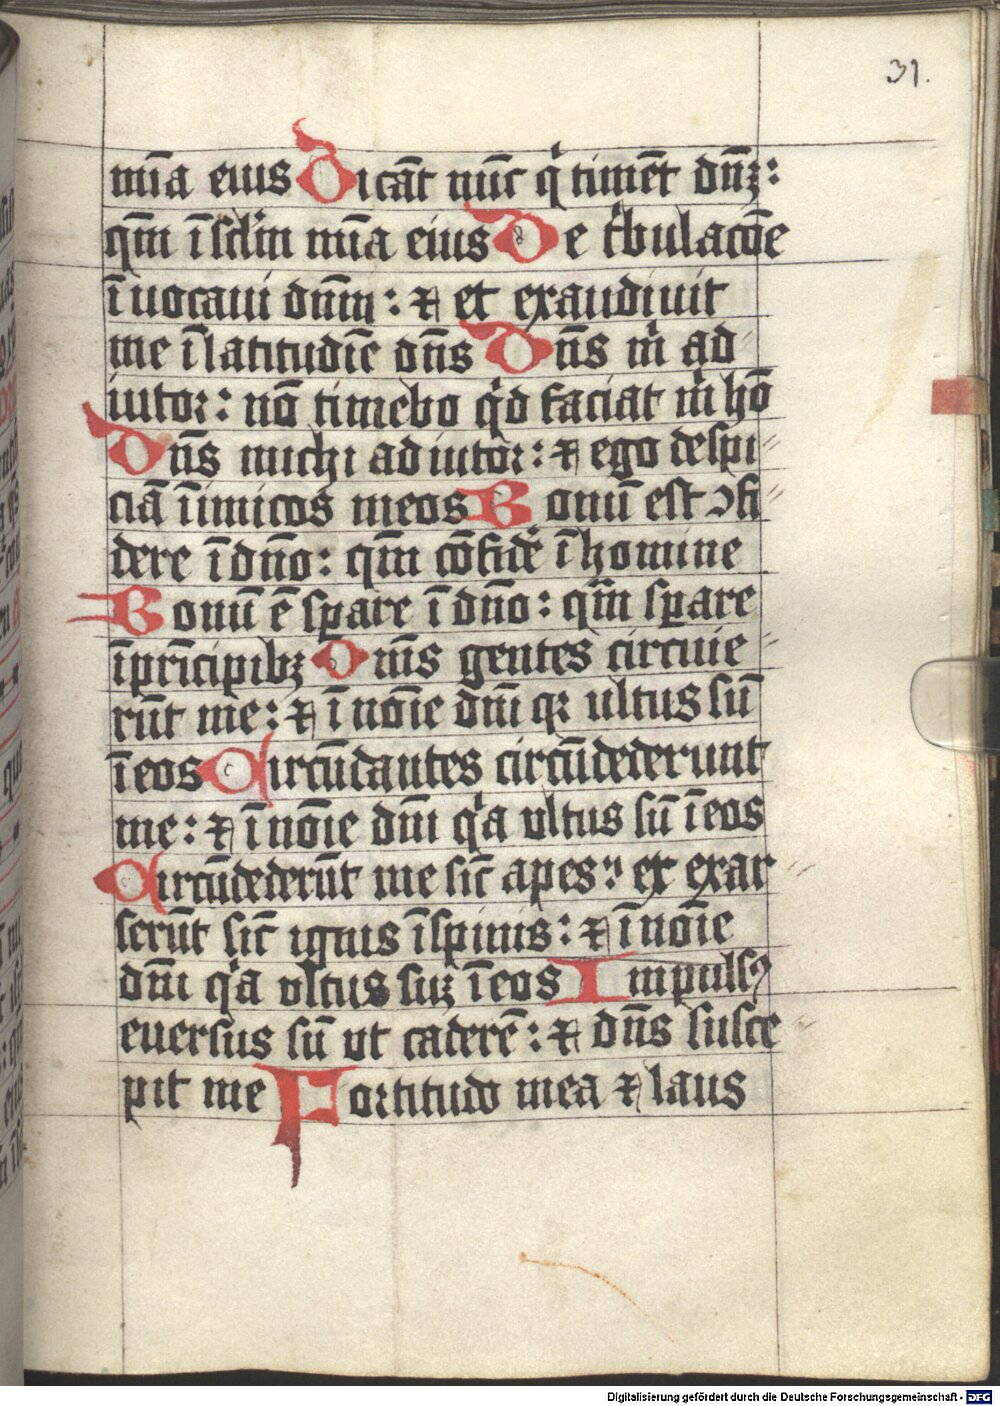 31.
mīa eius Dicāt nūc q̇ timēt dn̄ꝫ:
qm̄ ī sclm̄ mīa eius De tͥbulacōe
īuocaui dn̄m : ⁊ et exaudiuit
me ī latitudīe dn̄s Dn̄s mͥ ad
iutor: nō timebo qͥd faciat mͥ hō
Dn̄s michi adiutor: ⁊ ego despi
ciā īimicos meos Bonū est ↄfi
dere ī dn̄o: qm̄ cōfidẽ ī homine
Bonū ē sꝑare ī dn̄o: qm̄ sꝑare
ī prīcipibꝫ Om̄s gentes circuie
rūt me: ⁊ ī noīe dn̄i qꝛ ultus sū
ī eos Circūdantes circūdederunt
me: ⁊ ī noīe dn̄i qͣa vltus sū ī eos
Circūdederūt me sic̄ apes: et exar
serūt sic̄ ignis ī spinis: ⁊ ī noīe
dn̄i qͣa vltus suꝫ ī eos Impulsꝰ
euersus sū ut caderē: ⁊ dn̄s susce
pit me Fortitudo mea ⁊ laus
Digitalisierung gefördert durch die Deutsche Forschungsgemeinschaft - DFG